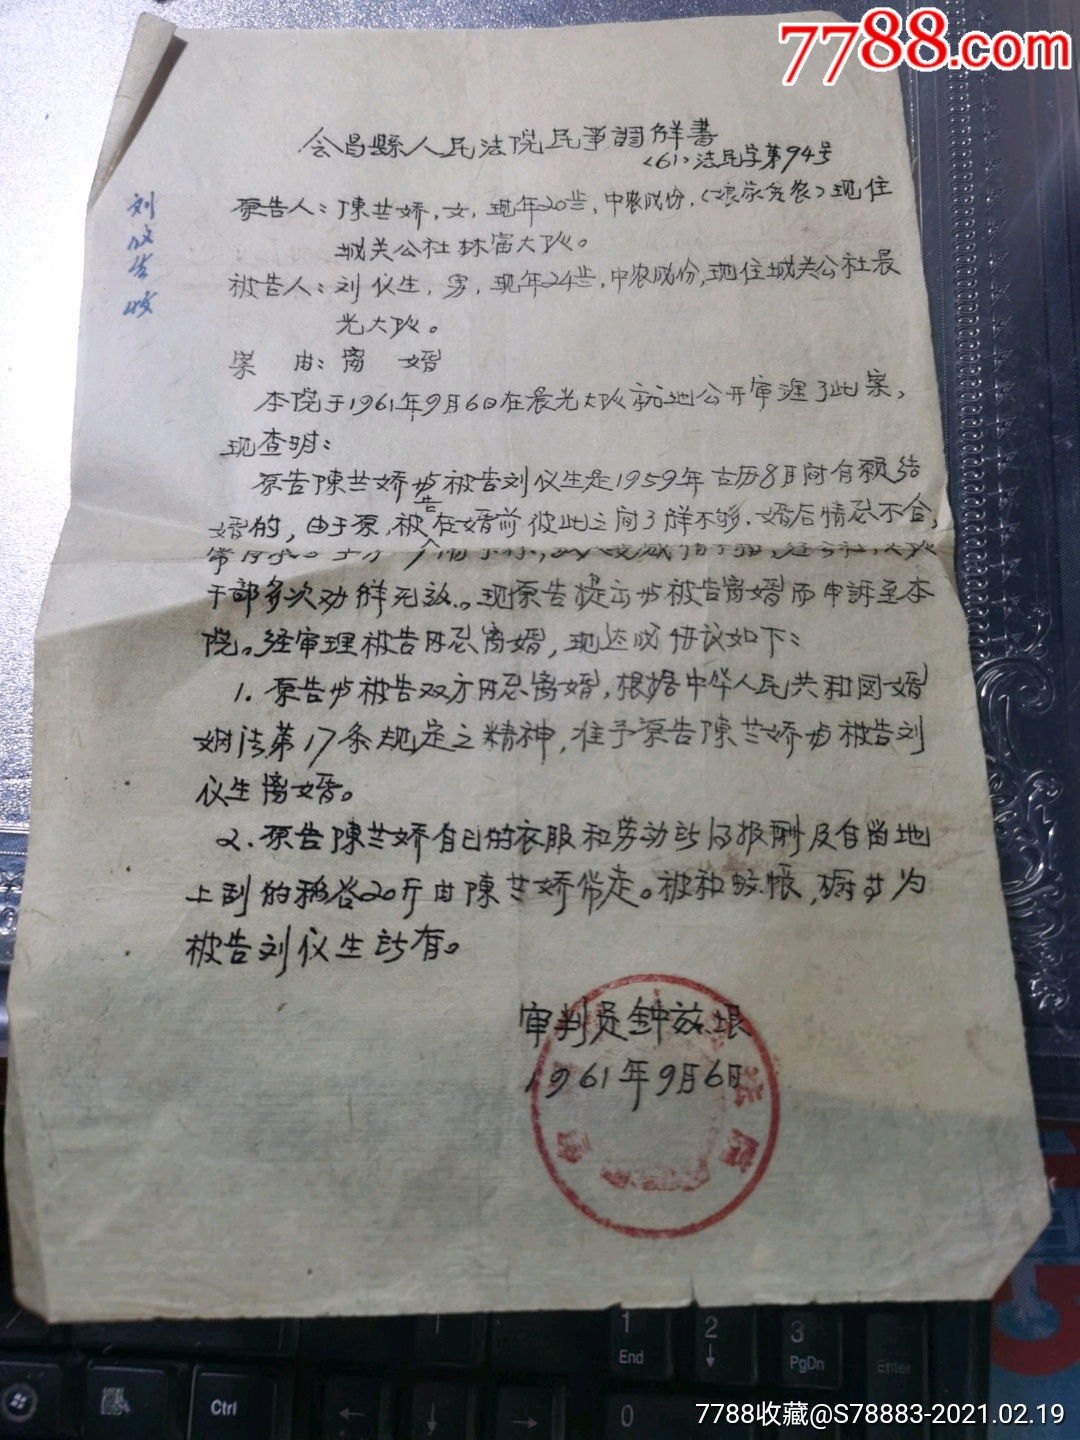 7788.com
会昌縣人民法院民事調解書
(61)法民字第94号
原告人：陳兰娇，女，现年20岁，中农成份，(娘家贫农)现住
城关公社林富大队。
被告人：刘仪生，男，现年24岁，中农成份，现住城关公社晨
光大队。
案 由：离 婚
本院于1961年9月6日在晨光大队就地公开审理了此案，
现查明：
原告陳兰娇与被告刘仪生是1959年古历8月间自愿结
婚的，由于原，被告在婚前彼此之间了解不够，婚后情感不合，
常
干部多次劝解无效。现原告提出与被告离婚而申訴至本
院。经审理被告同意离婚，现达成协议如下：
1. 原告与被告双方同意离婚，根据中华人民共和国婚
姻法第17条规定之精神，准予原告陳兰娇与被告刘
仪生离婚。
2. 原告陳兰娇自己的衣服和劳动所得报酬及自留地
上到的稻谷20斤由陳兰娇带走。被和蚊帐，橱 为
被告刘仪生所有。
审判员钟 垠
1961年9月6日
法院
刘 告收
1 End
2
3 PgDn
Enter
Ctrl
0
7788收藏@S78883-2021.02.19